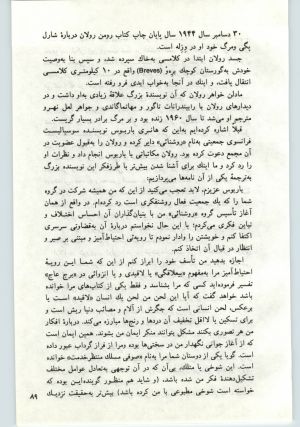 ۳۰ دسامبر سال ۱۹۴۴ سال پایان چاپ کتاب رومن رولان دربارهٔ شارل
پگی ومرگ خود او در وزله است.
جسد رولان ابتدا در کلامسی به‌خاک سپرده شد، و سپس بنا به‌وصیت
خودش به‌گورستان کوچک بره‌و (Breves) واقع در ۱۰ کیلومتری کلامسی
انتقال یافت، و در آنجا به‌خواب ابدی فرو رفته است.
مادلن خواهر رولان که آن نویسندهٔ بزرگ علاقهٔ زیادی به‌او داشت و در
دیدارهای رولان با رابیندرانات تاگور و مهاتماگاندی و جواهر لعل نهرو
مترجم او می‌شد تا سال ۱۹۶۰ زنده بود و بر مرگ برادر بسیار گریست.
قبلا اشاره کرده‌ایم به‌این که هانری باربوس نویسنده سوسیالیست
فرانسوی جمعیتی به‌نام «روشنائی» دایر کرده و رولان را به‌قبول عضویت در
آن مجمع دعوت کرده بود. رولان مکاتباتی با باربوس انجام داد و نظرات او
را رد کرد و ما اینک برای آشنا شدن بیشتر با طرزفکر این نویسنده بزرگ
به‌ترجمهٔ یکی از آن نامه‌ها می‌پردازیم:
باربوس عزیزم، لابد تعجب می‌کنید از این که من همیشه شرکت در گروه
شما را که یك جمعیت فعال روشنفکری است رد کرده‌ام. در واقع از همان
آغاز تأسیس گروه «روشنائی» من با بنیان‌گذاران آن احساس اختلاف و
تباین فکری می‌کردم؛ با این حال نخواستم دربارهٔ آن به‌قضاوتی سرسری
اکتفا کنم و خویشتن را وادار نمودم تا رویه‌ئی احتیاط‌آمیز و مبتنی بر صبر و
انتظار در قبال آن اتخاذ کنم.
اجازه بدهید من تأسف خود را ابراز کنم از این که شما این رویهٔ
احتیاط‌آمیز مرا به‌مفهوم «بیعلاقگی» یا لاقیدی و یا انزوائی در «برج عاج»
تفسیر فرموده‌اید کسی که مرا بشناسد و فقط یکی از کتاب‌های مرا خوانده
باشد خواهد گفت که آیا این لحن من لحن یك انسان «لاقید» است یا
برعکس، لحن انسانی است که جگرش از آلام و مصائب دنیا ریش است و
برای تسکین یا لااقل تخفیف آن دردها و رنج‌ها مبارزه می‌کند. دربارهٔ افکار
من هر تصوری بکنند مشکل بتوانند منکر ایمان من بشوند. همین ایمان است
که از آغاز جوانی نگهدار من در سختی‌ها بوده ومرا از فراز گرداب عبور داده
است. گویا یکی از دوستان شما مرا به‌نام «صوفی مسلك منتظرخدمت» خوانده
است. این شوخی یا متلك، بی‌آن که در آن توجهی به‌تعادل عوامل مختلف
تشکیل‌دهندهٔ فکر من شده باشد، (و شاید هم منظور گوینده‌این بوده که
خواسته است شوخی مطبوعی با من کرده باشد) بیش‌تر به‌حقیقت نزدیـك
۸۹